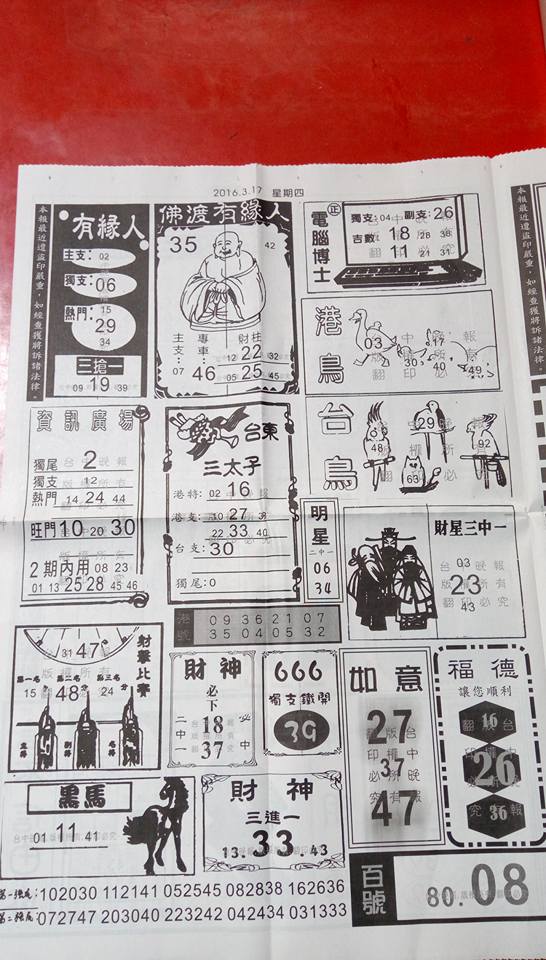 2016.3.17 星期四
本報最近遭盜印嚴重，如經查獲將訴諸法律。
有緣人
主支：02
獨支：06
熱門：
15
29
34
三搶一
09 19 39
佛渡有緣人
35
42
主支：07
專車：46
財柱
12 22 32
05 25 45
電腦博士
正
獨支：04 副支：26
吉數：18 28 38
11 21 31
港鳥
03
17
30
40
49
台鳥
48
29
92
63
資訊廣場
獨尾 2
獨支 12
熱門 14 24 44
旺門 10 20 30
2期內用 08 23
01 13 25 28 45 46
台東
三太子
港特：02 16
港支：10 27
22 33 40
台支：30
獨尾：0
明星
二中一
06
34
財星三中一
03
23
43
港號
09 36 21 07
35 04 05 32
射擊比賽
31 47
第一名 第二名 第三名
15 48 24
財神
必下
二中一
18
37
666
獨支鐵開
39
如意
27
37
47
福德
讓您順利
16
26
36
黑馬
01 11 41
財神
三進一
13. 33. 43
第一強尾：102030 112141 052545 082838 162636
第二強尾：072747 203040 223242 042434 031333
百號
80. 08